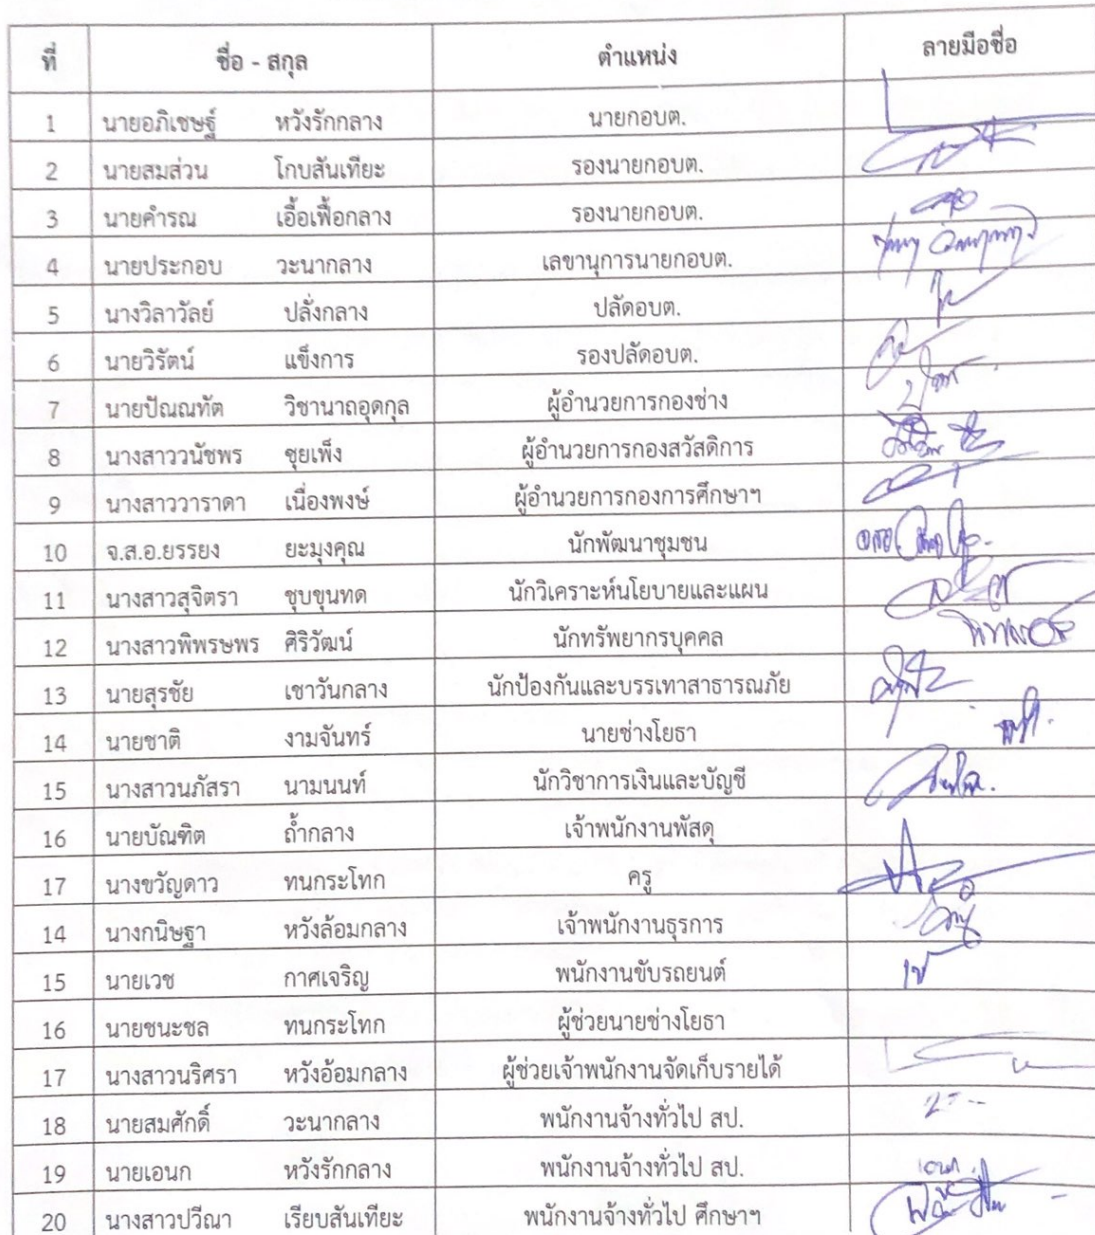 ที่ ชื่อ - สกุล ตำแหน่ง ลายมือชื่อ
1 นายอภิเชษฐ์ หวังรักกลาง นายกอบต.
2 นายสมส่วน โกบสันเทียะ รองนายกอบต.
3 นายคำรณ เอื้อเฟื้อกลาง รองนายกอบต.
4 นายประกอบ วะนากลาง เลขานุการนายกอบต.
5 นางวิลาวัลย์ ปลั่งกลาง ปลัดอบต.
6 นายวิรัตน์ แข็งการ รองปลัดอบต.
7 นายปัณณทัต วิชานาถอุดกุล ผู้อำนวยการกองช่าง
8 นางสาววนัชพร ชุยเพ็ง ผู้อำนวยการกองสวัสดิการ
9 นางสาววาราดา เนื่องพงษ์ ผู้อำนวยการกองการศึกษาฯ
10 จ.ส.อ.ยรรยง ยะมุงคุณ นักพัฒนาชุมชน
11 นางสาวสุจิตรา ชุบขุนทด นักวิเคราะห์นโยบายและแผน
12 นางสาวพิพรษพร ศิริวัฒน์ นักทรัพยากรบุคคล
13 นายสุรชัย เชาวันกลาง นักป้องกันและบรรเทาสาธารณภัย
14 นายชาติ งามจันทร์ นายช่างโยธา
15 นางสาวนภัสรา นามนนท์ นักวิชาการเงินและบัญชี
16 นายบัณฑิต ถ้ำกลาง เจ้าพนักงานพัสดุ
17 นางขวัญดาว ทนกระโทก ครู
14 นางกนิษฐา หวังล้อมกลาง เจ้าพนักงานธุรการ
15 นายเวช กาศเจริญ พนักงานขับรถยนต์
16 นายชนะชล ทนกระโทก ผู้ช่วยนายช่างโยธา
17 นางสาวนริศรา หวังอ้อมกลาง ผู้ช่วยเจ้าพนักงานจัดเก็บรายได้
18 นายสมศักดิ์ วะนากลาง พนักงานจ้างทั่วไป สป.
19 นายเอนก หวังรักกลาง พนักงานจ้างทั่วไป สป. เอนก
20 นางสาวปวีณา เรียบสันเทียะ พนักงานจ้างทั่วไป ศึกษาฯ